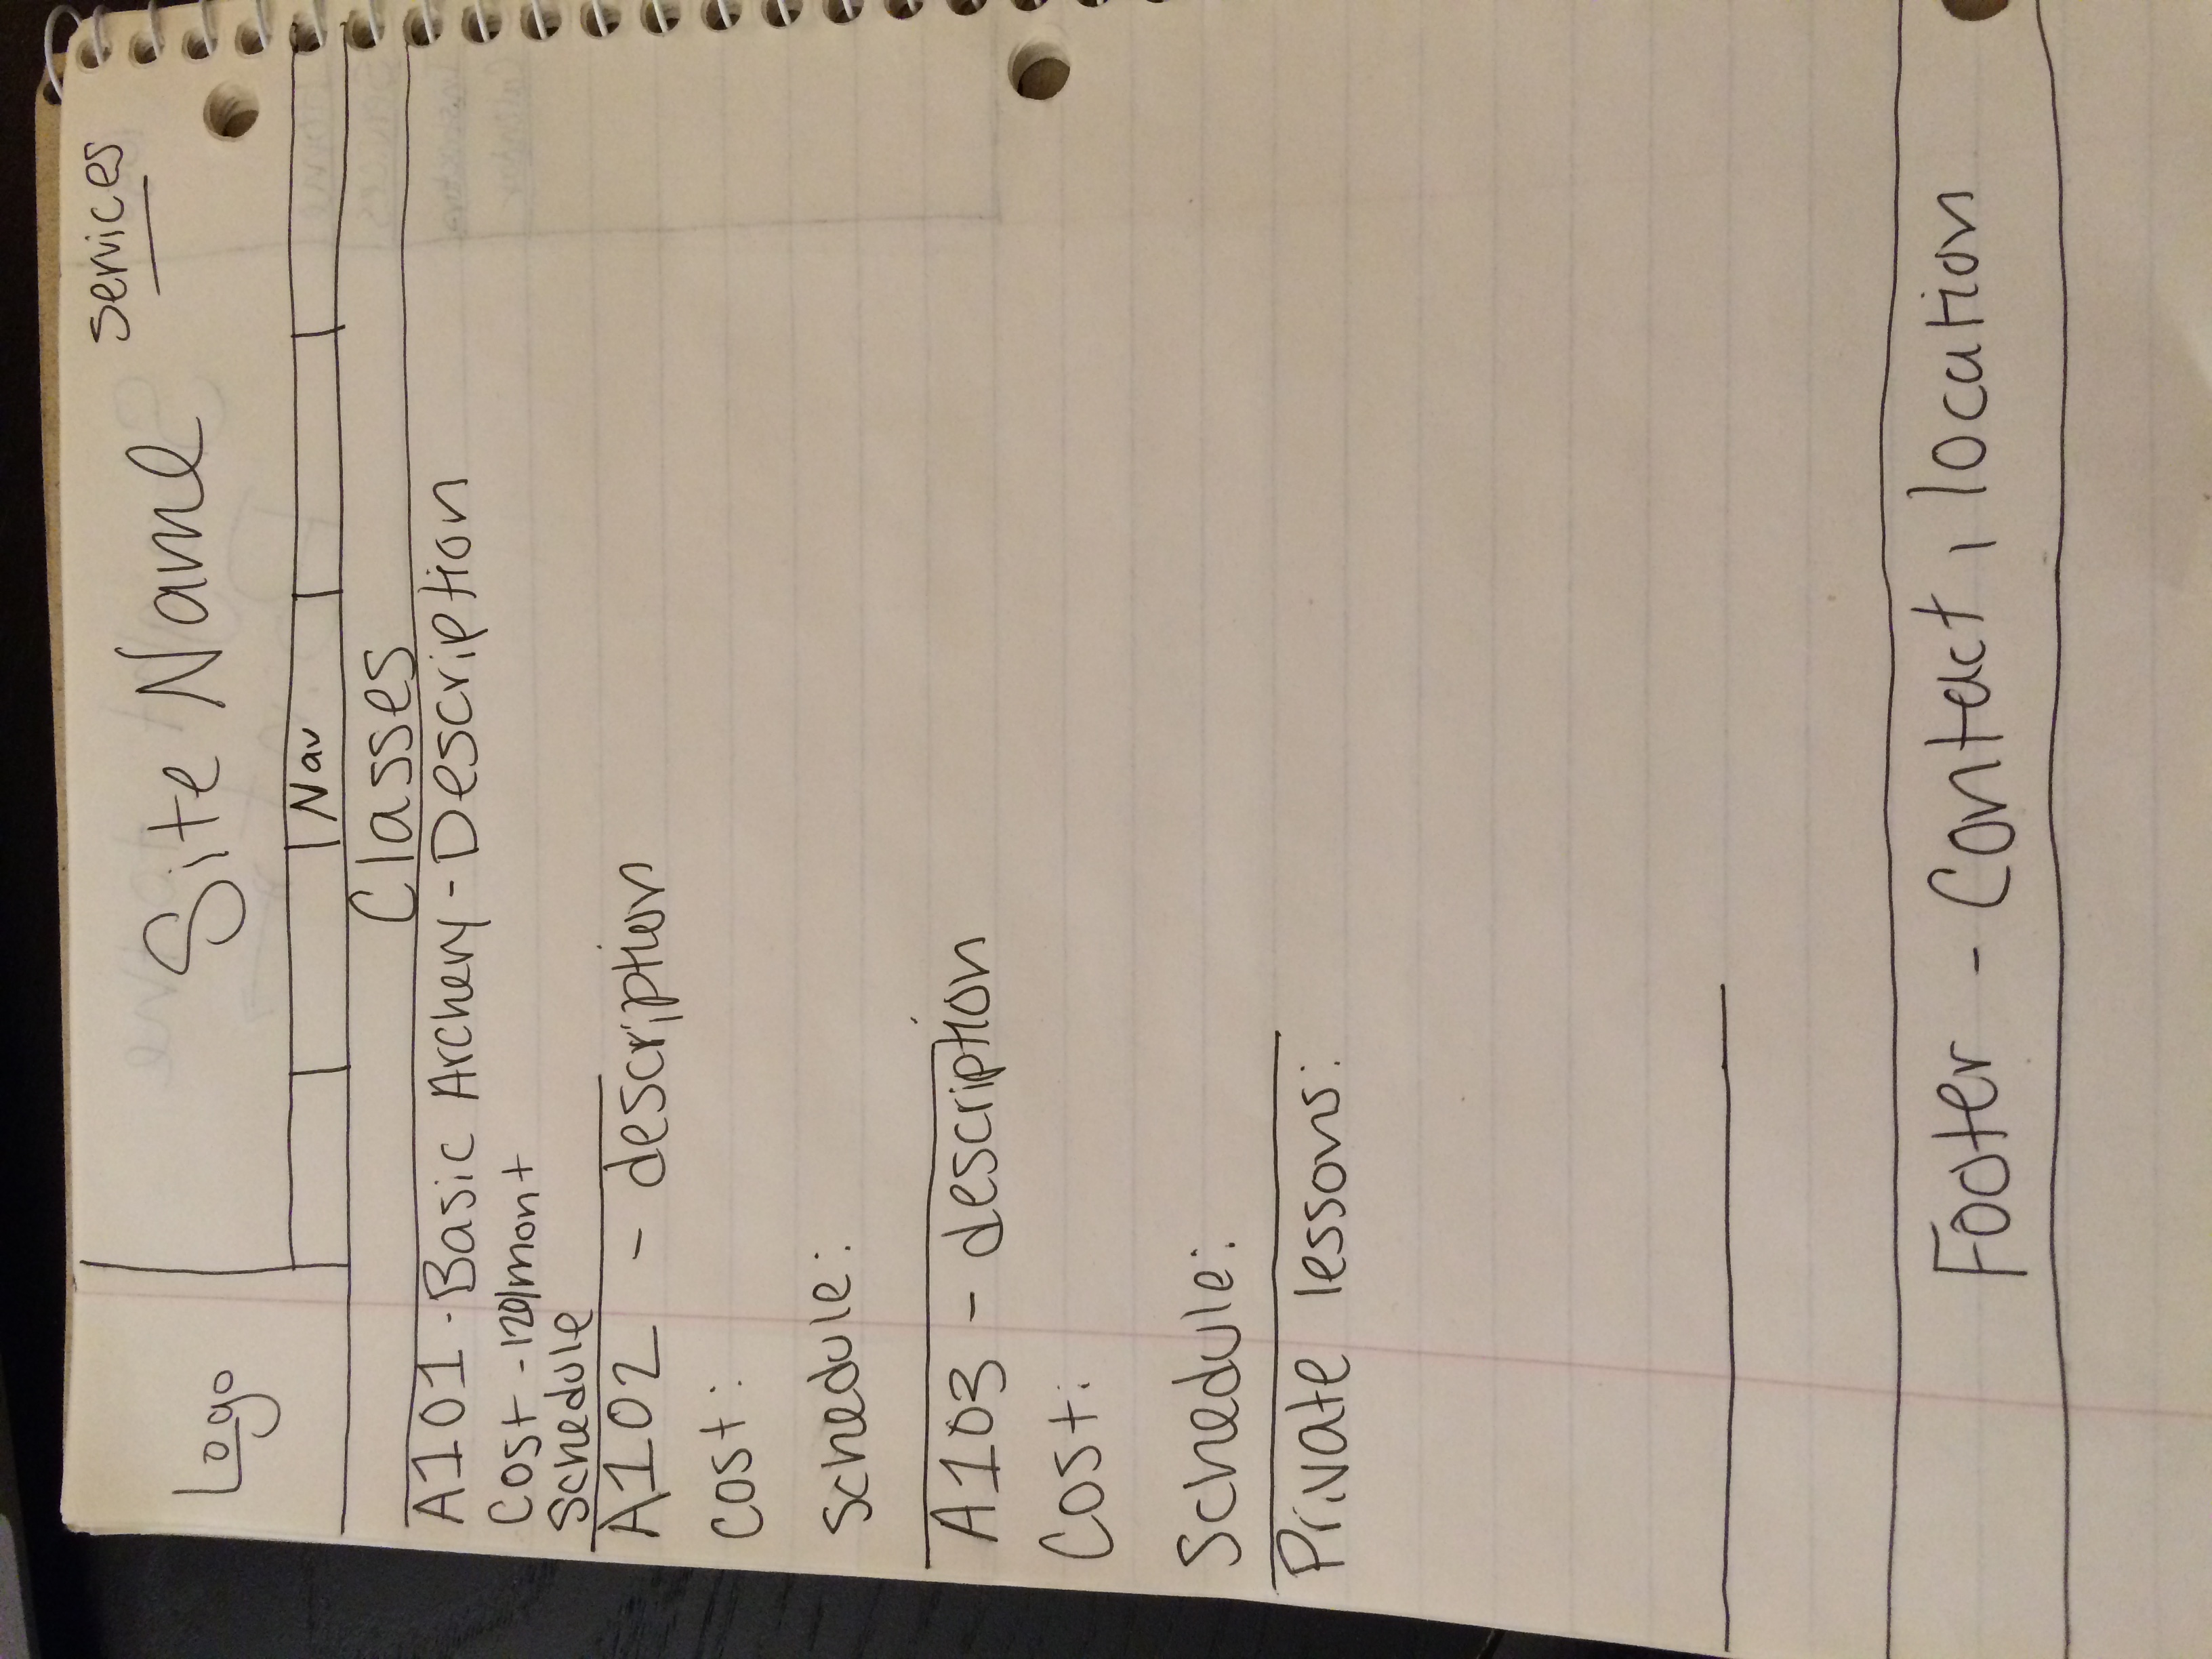 Services
Site Name
Logo
Nav
Classes
A101 - Basic Archery - Description
Cost - 120/mont
Schedule
A102 - description
Cost:
Schedule:
A103 - description
Cost:
Schedule:
Private lessons:
Footer - Contact, location